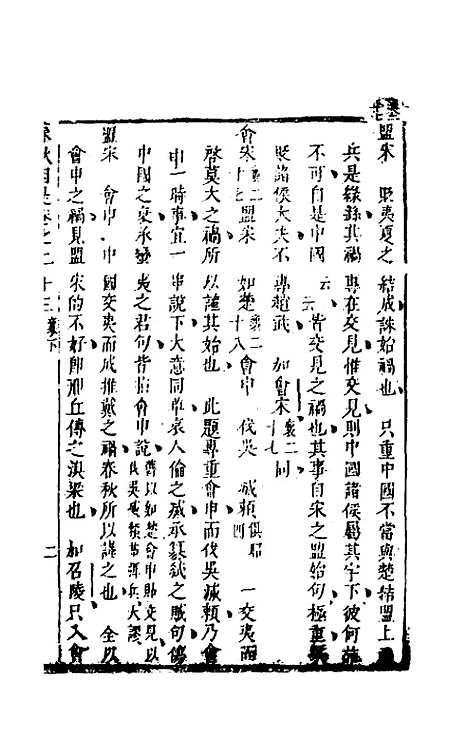 盟宋　聚夷夏之　結成誅始禍也　只重中國不當與楚結盟上
兵是緣餘其禍　專在交見惟交見則中國諸侯屬其宇下彼何
不可自是中國　云云皆交見之禍也其事自宋之盟始句極重
聚諸侯大夫不　專趙武　如會宋襄二十七同
會宋襄二十七盟宋　如楚襄二十八會申　伐吳　滅賴俱昭四　一交夷而
啓莫大之禍所　以謹其始也　此題專重會申而伐吳滅賴乃會
申一時事宜一　串說下大意同單哀人倫之滅承篡弒之賊句
中國之衰承發　夷之君句皆指會申說舊以如楚會申貼交見以伐吳滅賴
盟宋　會申　申　國交夷而成推戴之禍春秋所以謹之也　全以
會申之禍見盟　宋的不好即邢丘傳之溴梁也　如召陵只入會
十三襄下
二